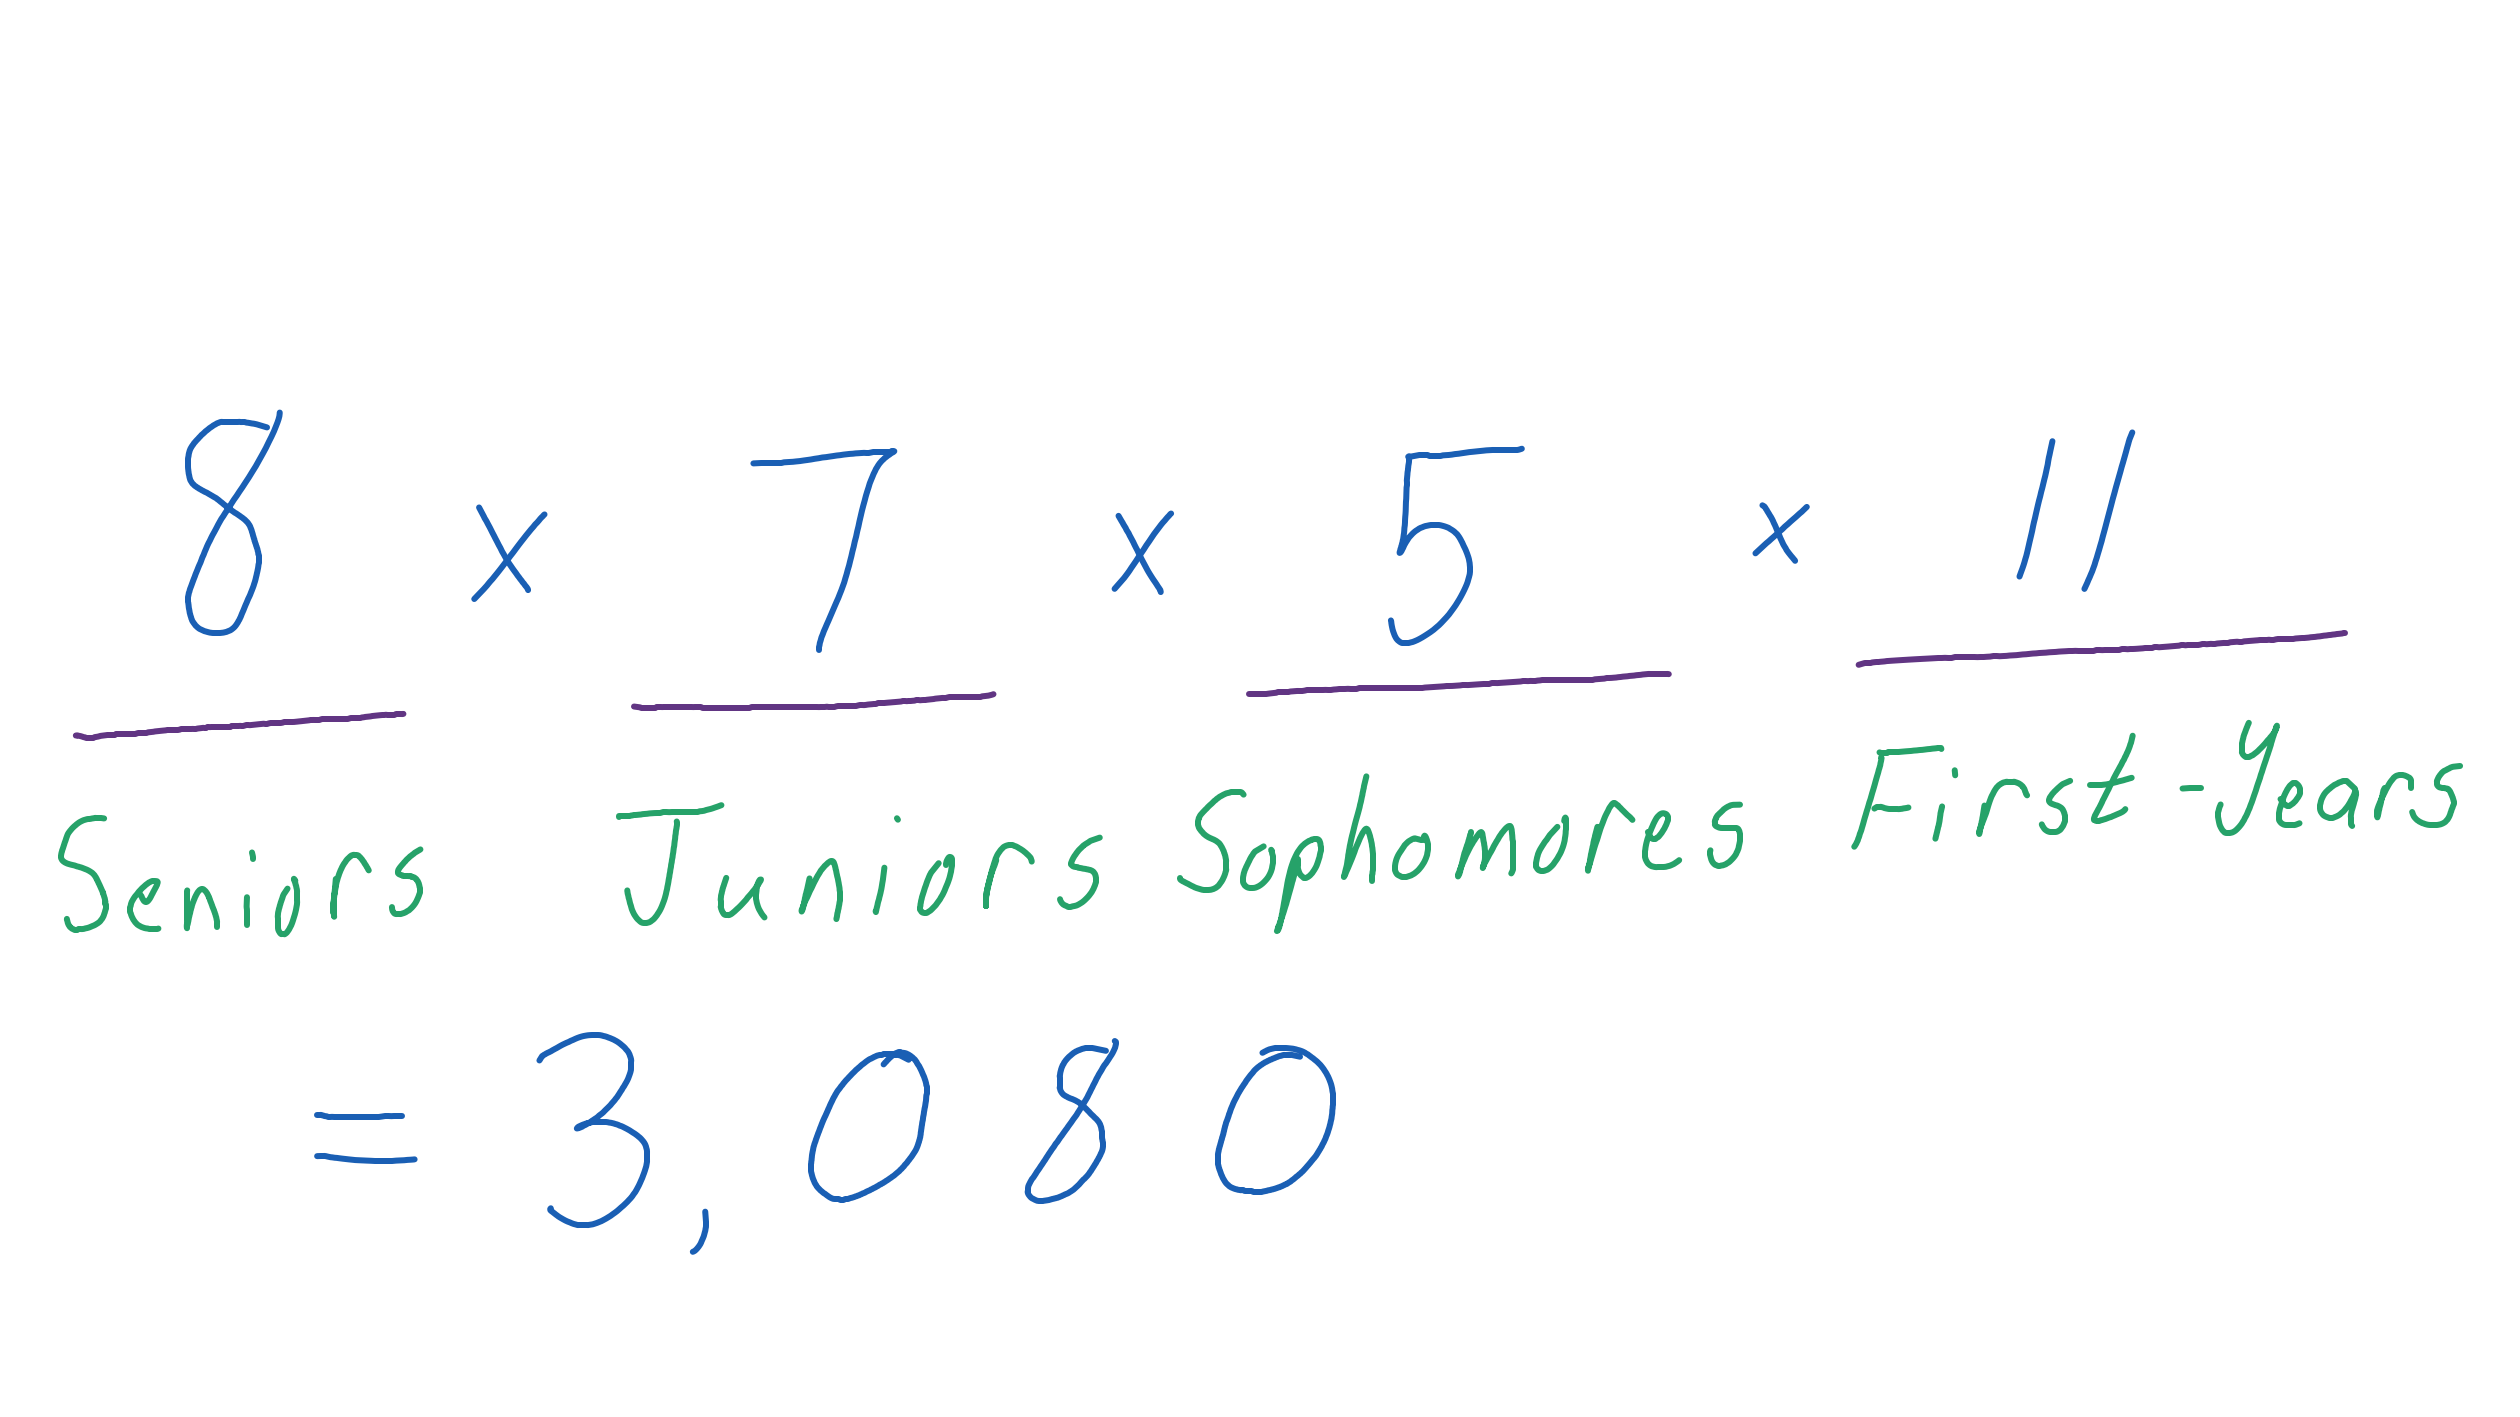 8 x 7 x 5 x 11
Seniors Juniors Sophomores First-years
= 3,080